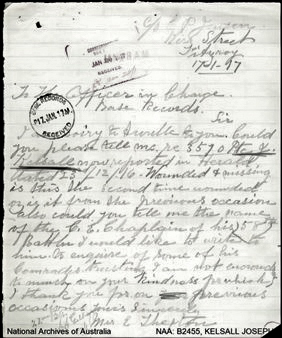 Street
Fitzroy
17-1-17
RECEIVED
To The Officer in Charge.
Base Records.
Sir
BASE RECORDS
P17.JAN.17M.
RECEIVED
I to write to you. Could
you please tell me, re 3570 Pte J.
Kelsall now reported in Herald
dated 28/12/16. Wounded & missing
is this the second time wounded
or is it from the previous occasion
also could you tell me the name
of the C. E. Chaplain of his 58th
Battn I would like to write to
him to enquire of some of his
Comrades trusting I am not encroach
to much on your kindness for which
I thank you for on previous
occasions yours sincerely
Mrs E
National Archives of Australia
NAA: B2455, KELSALL JOSEPH